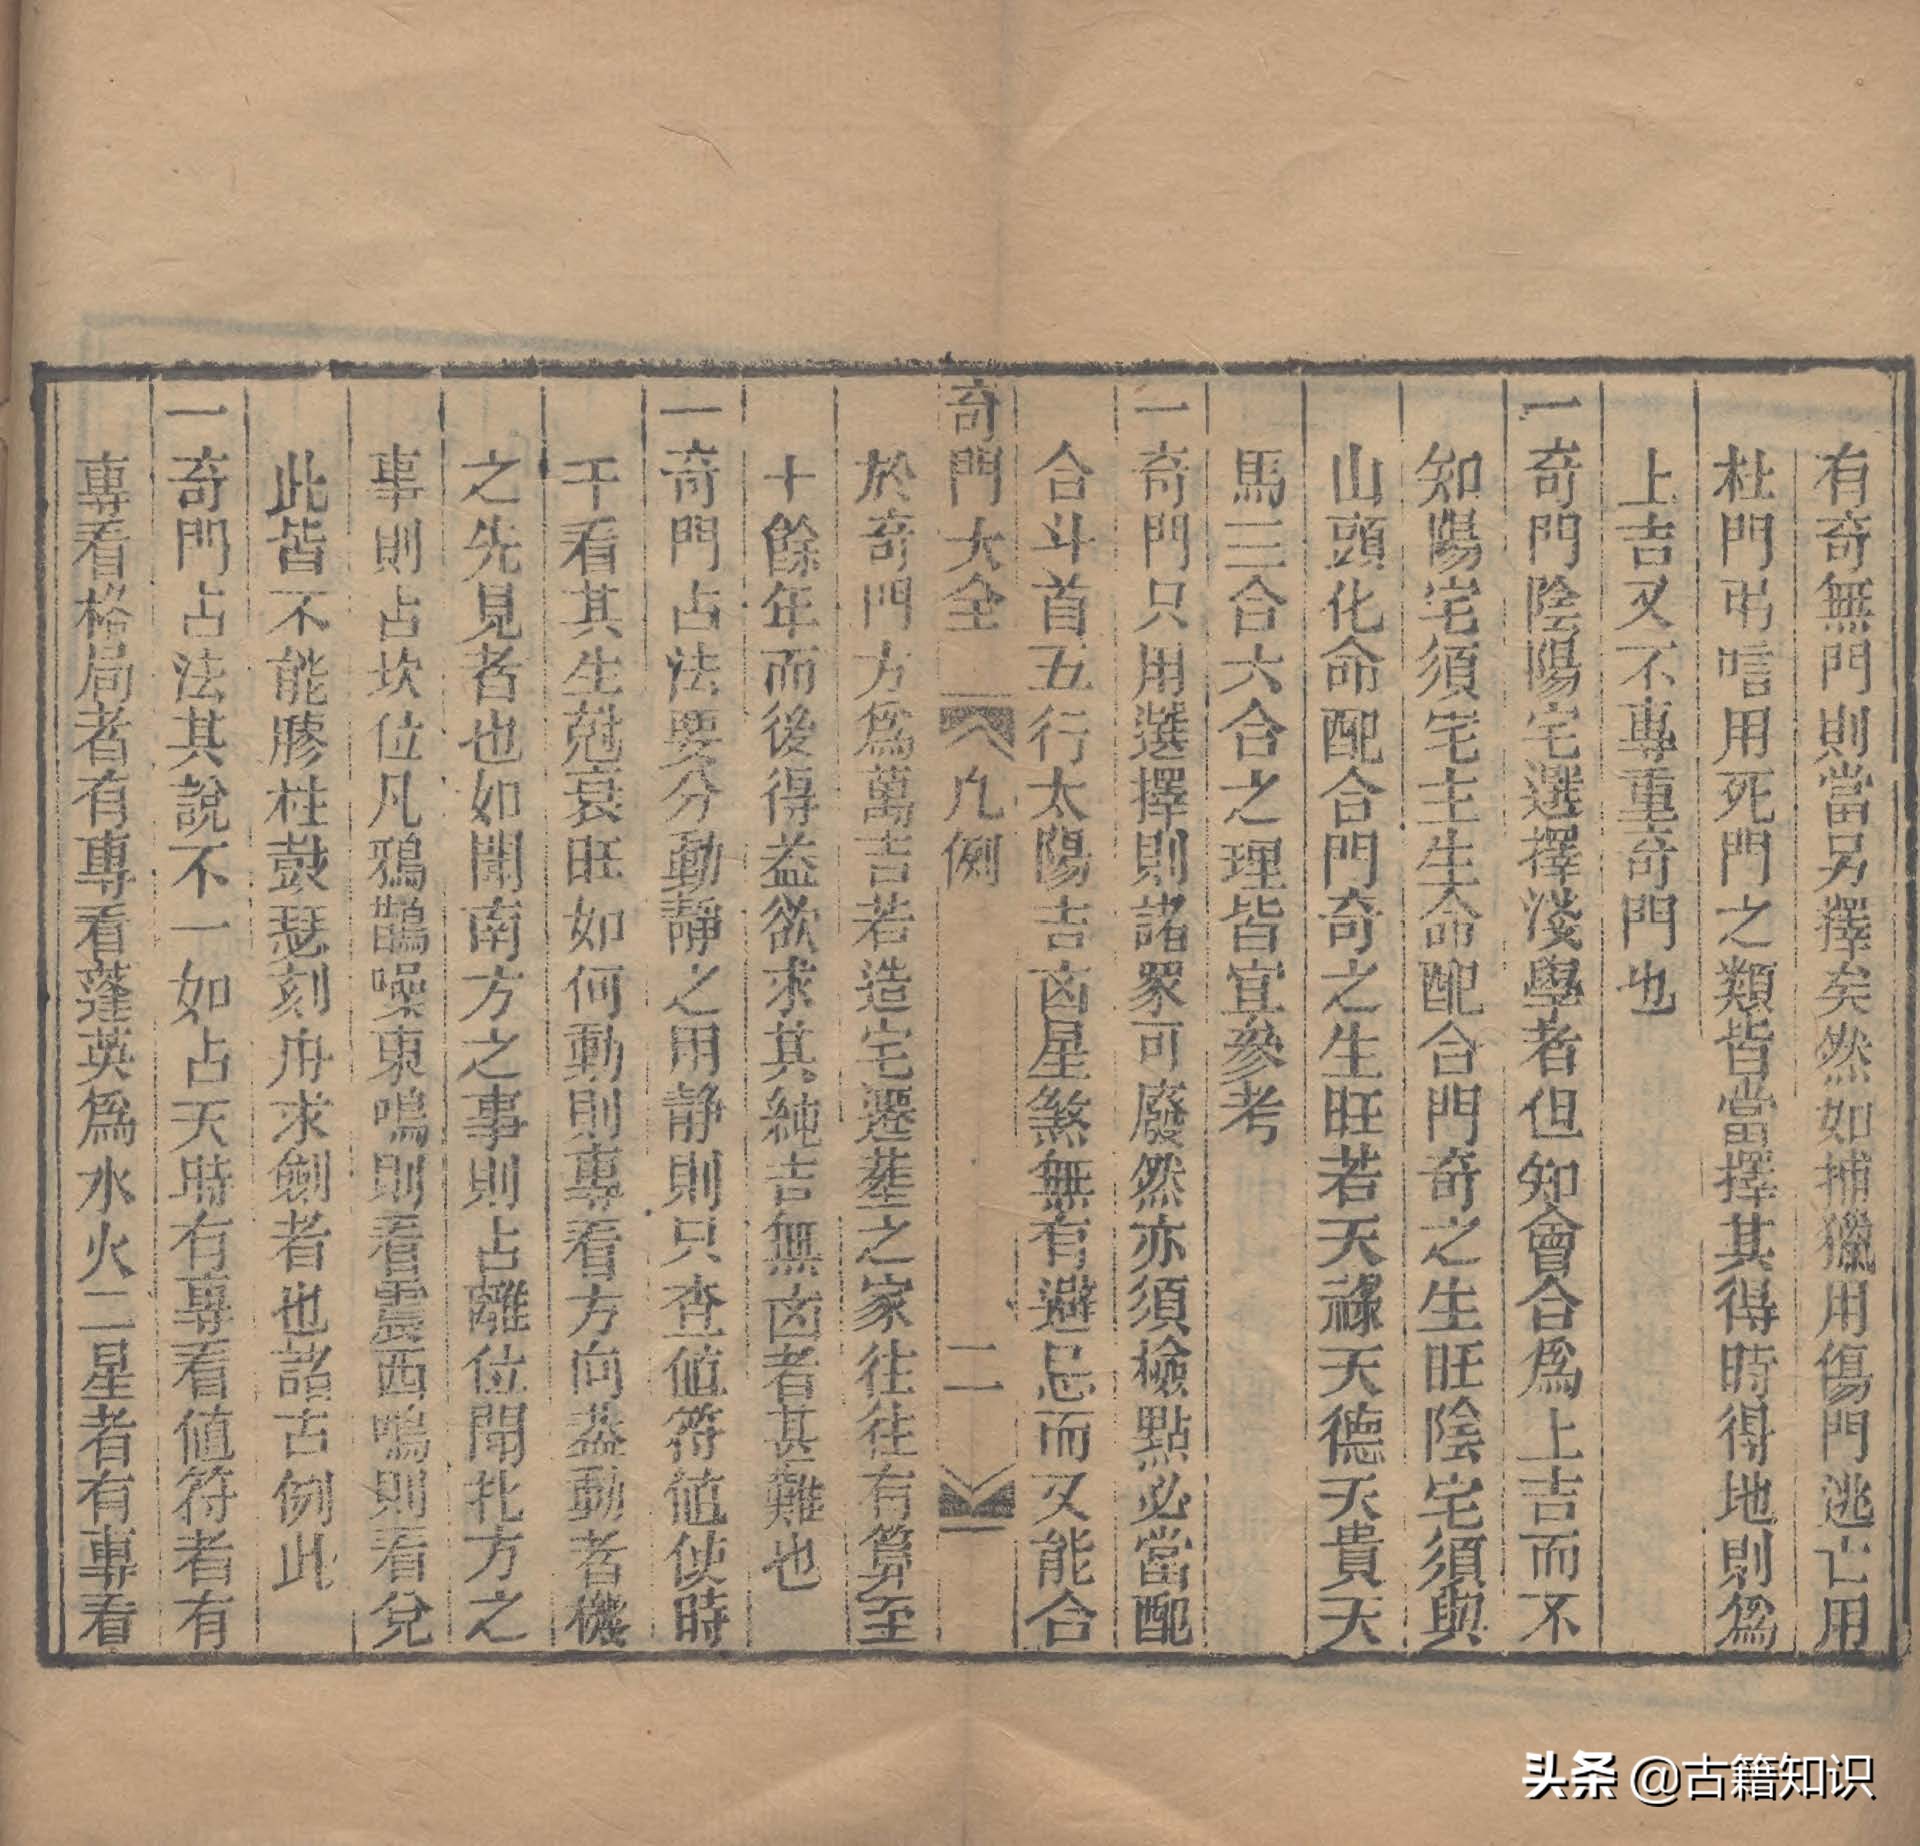 有奇無門則當另擇矣然如捕獵用傷門逃亡用
杜門弔唁用死門之類皆當擇其得時得地則爲
上吉又不專重奇門也
一奇門陰陽宅選擇淺學者但知會合爲上吉而不
知陽宅須宅主生命配合門奇之生旺陰宅須與
山頭化命配合門奇之生旺若天祿天德天貴天
馬三合六合之理皆宜參考
一奇門只用選擇則諸家可廢然亦須檢點必當配
合斗首五行太陽吉凶星煞無有避忌而又能合
奇門大全 凡例 二
於奇門方爲萬吉若造宅遷塟之家往往有算至
十餘年而後得葢欲求其純吉無凶者甚難也
一奇門占法要分動靜之用静則只查值符值使時
干看其生尅衰旺如何動則專看方向葢動者機
之先見者也如聞南方之事則占離位聞北方之
事則占坎位凡鴉鵲噪東鳴則看震西鳴則看兌
此皆不能膠柱鼓瑟刻舟求劍者也諸古例此
一奇門占法其說不一如占天時有專看値符者有
專看格局者有專看蓬英爲水火二星者有專看
头条 @古籍知识